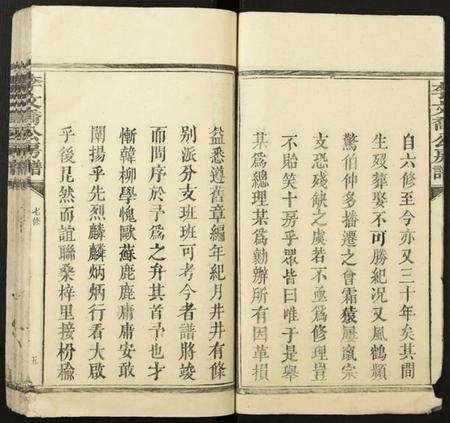 自六修至今亦又三十年矣其間
生殁葬娶不可勝紀况又風鶴頻
驚伯仲多播遷之會霜猿屢窺宗
支恐殘缺之虞若不亟為修理豈
不貽笑十房乎眾皆曰唯于是舉
某為總理某為勷辦所有因革損
益悉遵舊章編年紀月井井有條
别派分支班班可考今者譜將竣
而問序於予為之弁其首予也才
慚韓柳學愧歐蘇鹿鹿庸庸安敢
闡揚乎先烈麟麟炳炳行看大啟
乎後昆然而誼聯桑梓里接枌榆
李文裔公房譜
七修
五